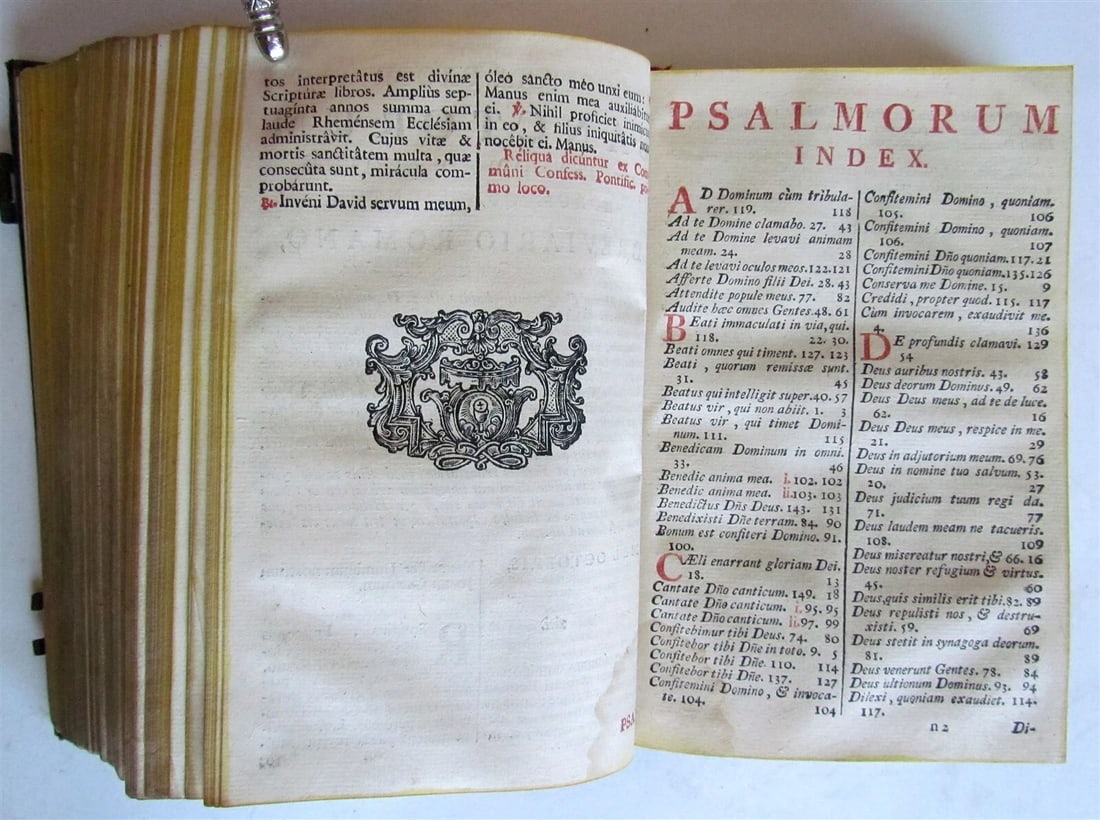 tos interpretâtus est divínæ
Scriptúræ libros. Ampliùs sep-
tuaginta annos summa cum
laude Rheménsem Ecclésiam
administrâvit. Cujus vitæ &
mortis sanctitâtem multa, quæ
consecûta sunt, mirácula com-
probárunt.
℞. Invéni David servum meum,
óleo sancto méo unxi eum:
Manus enim mea auxiliábitur
ei. ℣. Nihil profíciet inimicus
in eo, & filius iniquitâtis non
nocêbit ei. Manus.
Réliqua dicúntur ex Com-
mûni Confess. Pontific.
mo loco.
PSALMORUM
INDEX.
AD Dominum cùm tribula-
rer. 119. 118
Ad te Domine clamabo. 27. 43
Ad te Domine levavi animam
meam. 24. 28
Ad te levavi oculos meos. 122. 121
Afferte Domino filii Dei. 28. 43
Attendite popule meus. 77. 82
Audite hæc omnes Gentes. 48. 61
BEati immaculati in via, qui.
118. 22. 30.
Beati omnes qui timent. 127. 123
Beati, quorum remissæ sunt.
31. 45
Beatus qui intelligit super. 40. 57
Beatus vir, qui non abiit. 1. 3
Beatus vir, qui timet Domi-
num. 111. 115
Benedicam Dominum in omni.
33. 46
Benedic anima mea. i. 102. 102
Benedic anima mea. ii. 103. 103
Benedictus Dñs Deus. 143. 131
Benedixisti Dñe terram. 84. 90
Bonum est confiteri Domino. 91.
100.
CÆli enarrant gloriam Dei.
18. 13
Cantate Dño canticum. 149. 18
Cantate Dño canticum. i. 95. 95
Cantate Dño canticum. ii. 97. 99
Confitebimur tibi Deus. 74. 80
Confitebor tibi Dñe in toto. 9. 5
Confitebor tibi Dñe. 110. 114
Confitebor tibi Dñe. 137. 127
Confitemini Domino, & invoca-
te. 104. 104
Confitemini Domino, quoniam.
105. 106
Confitemini Domino, quoniam.
106. 107
Confitemini Dño quoniam. 117. 21
Confitemini Dño quoniam. 135. 126
Conserva me Domine. 15. 9
Credidi, propter quod. 115. 117
Cùm invocarem, exaudivit me.
4. 136
DE profundis clamavi. 129
54
Deus auribus nostris. 43. 58
Deus deorum Dominus. 49. 62
Deus Deus meus, ad te de luce.
62. 16
Deus Deus meus, respice in me.
21. 29
Deus in adjutorium meum. 69. 76
Deus in nomine tuo salvum. 53.
20. 27
Deus judicium tuum regi da.
71. 77
Deus laudem meam ne tacueris.
108. 109
Deus misereatur nostri, & 66. 16
Deus noster refugium & virtus.
45. 60
Deus, quis similis erit tibi. 82. 89
Deus repulisti nos, & destru-
xisti. 59. 69
Deus stetit in synagoga deorum.
81. 89
Deus venerunt Gentes. 78. 84
Deus ultionum Dominus. 93. 94
Dilexi, quoniam exaudiet. 114.
117.
n 2 Di-